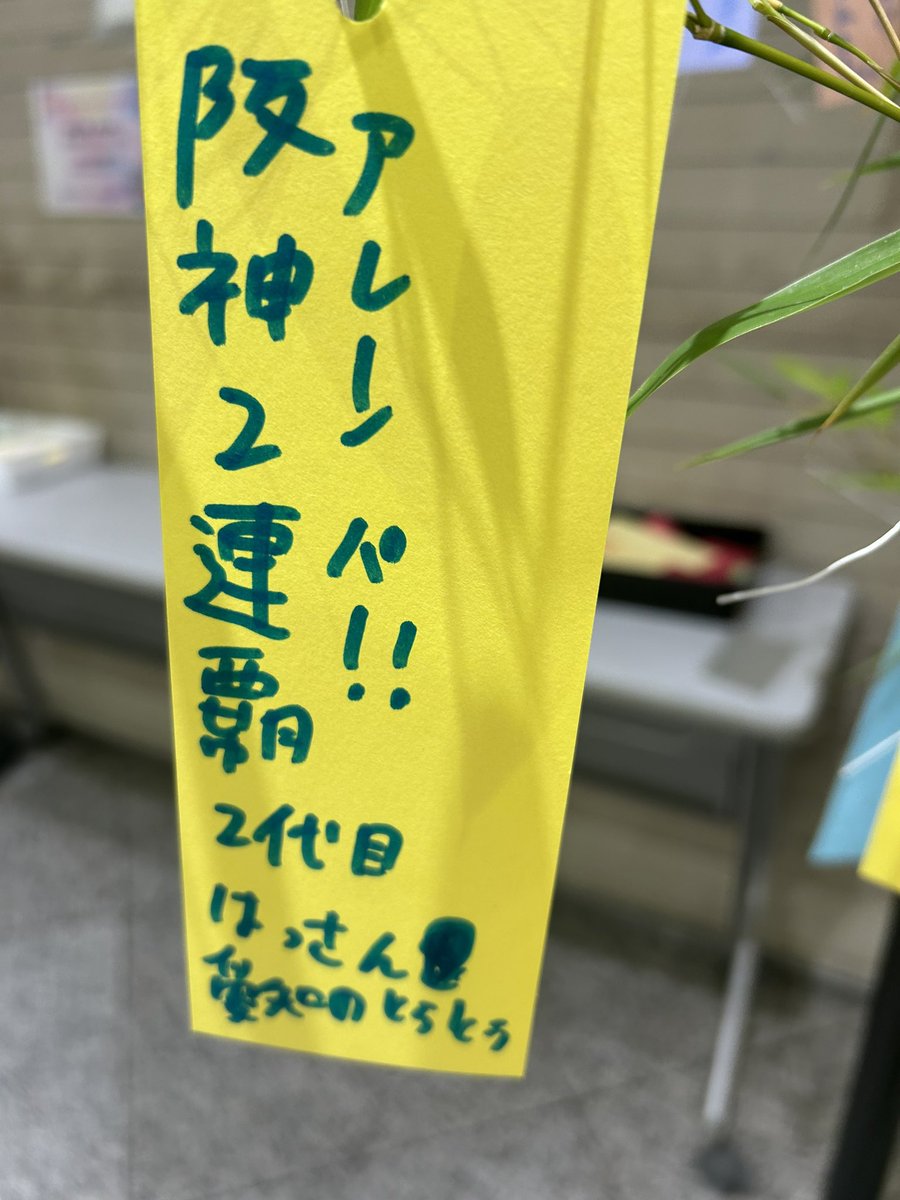 アレーンパ!!
阪神2連覇
2代目
はっさん
愛知の